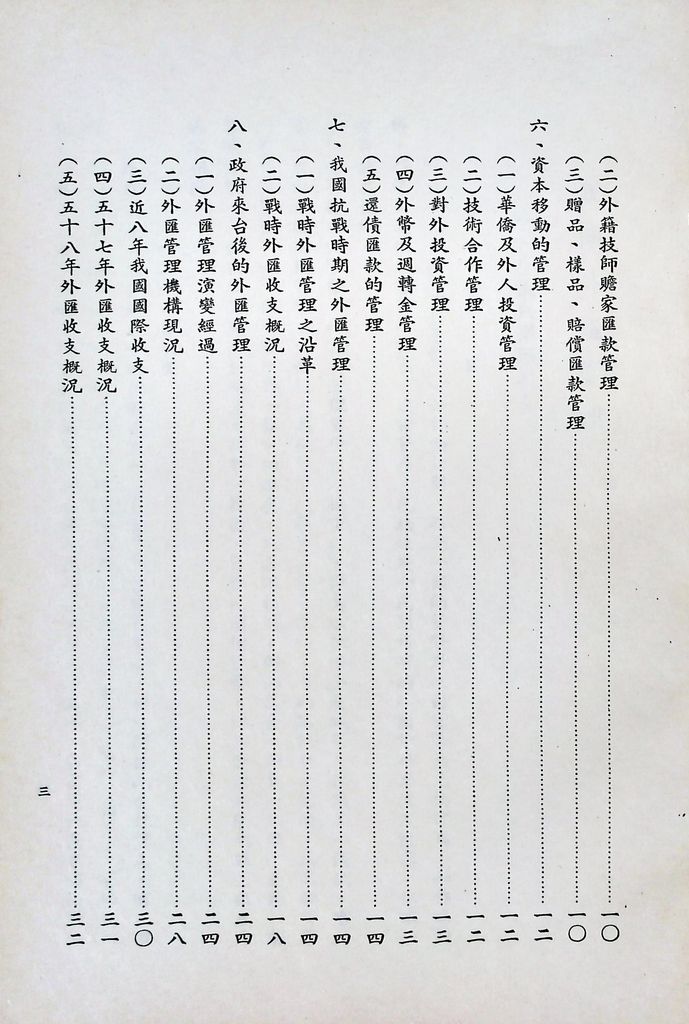 (二)外籍技師贍家匯款管理……一〇
(三)贈品、樣品、賠償匯款管理……一〇
六、資本移動的管理……一二
(一)華僑及外人投資管理……一二
(二)技術合作管理……一二
(三)對外投資管理……一三
(四)外幣及週轉金管理……一三
(五)還債匯款的管理……一四
七、我國抗戰時期之外匯管理……一四
(一)戰時外匯管理之沿革……一四
(二)戰時外匯收支概況……一八
八、政府來台後的外匯管理……二四
(一)外匯管理演變經過……二四
(二)外匯管理機構現況……二八
(三)近八年我國國際收支……三〇
(四)五十七年外匯收支概況……三一
(五)五十八年外匯收支概況……三二
三